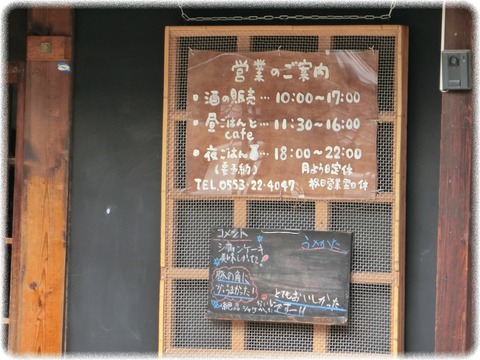 営業のご案内
・酒の販売…10:00〜17:00
・昼ごはんと…11:30〜16:00
cafe
・夜ごはん…18:00〜22:00
(要予約) 月よう日定休
TEL.0553-22-4047 祝日営業翌日休
コメント
シフォンケーキ
美味しかった!
豚の角に
がうまかった!
とてもおいしかった
ですー!!